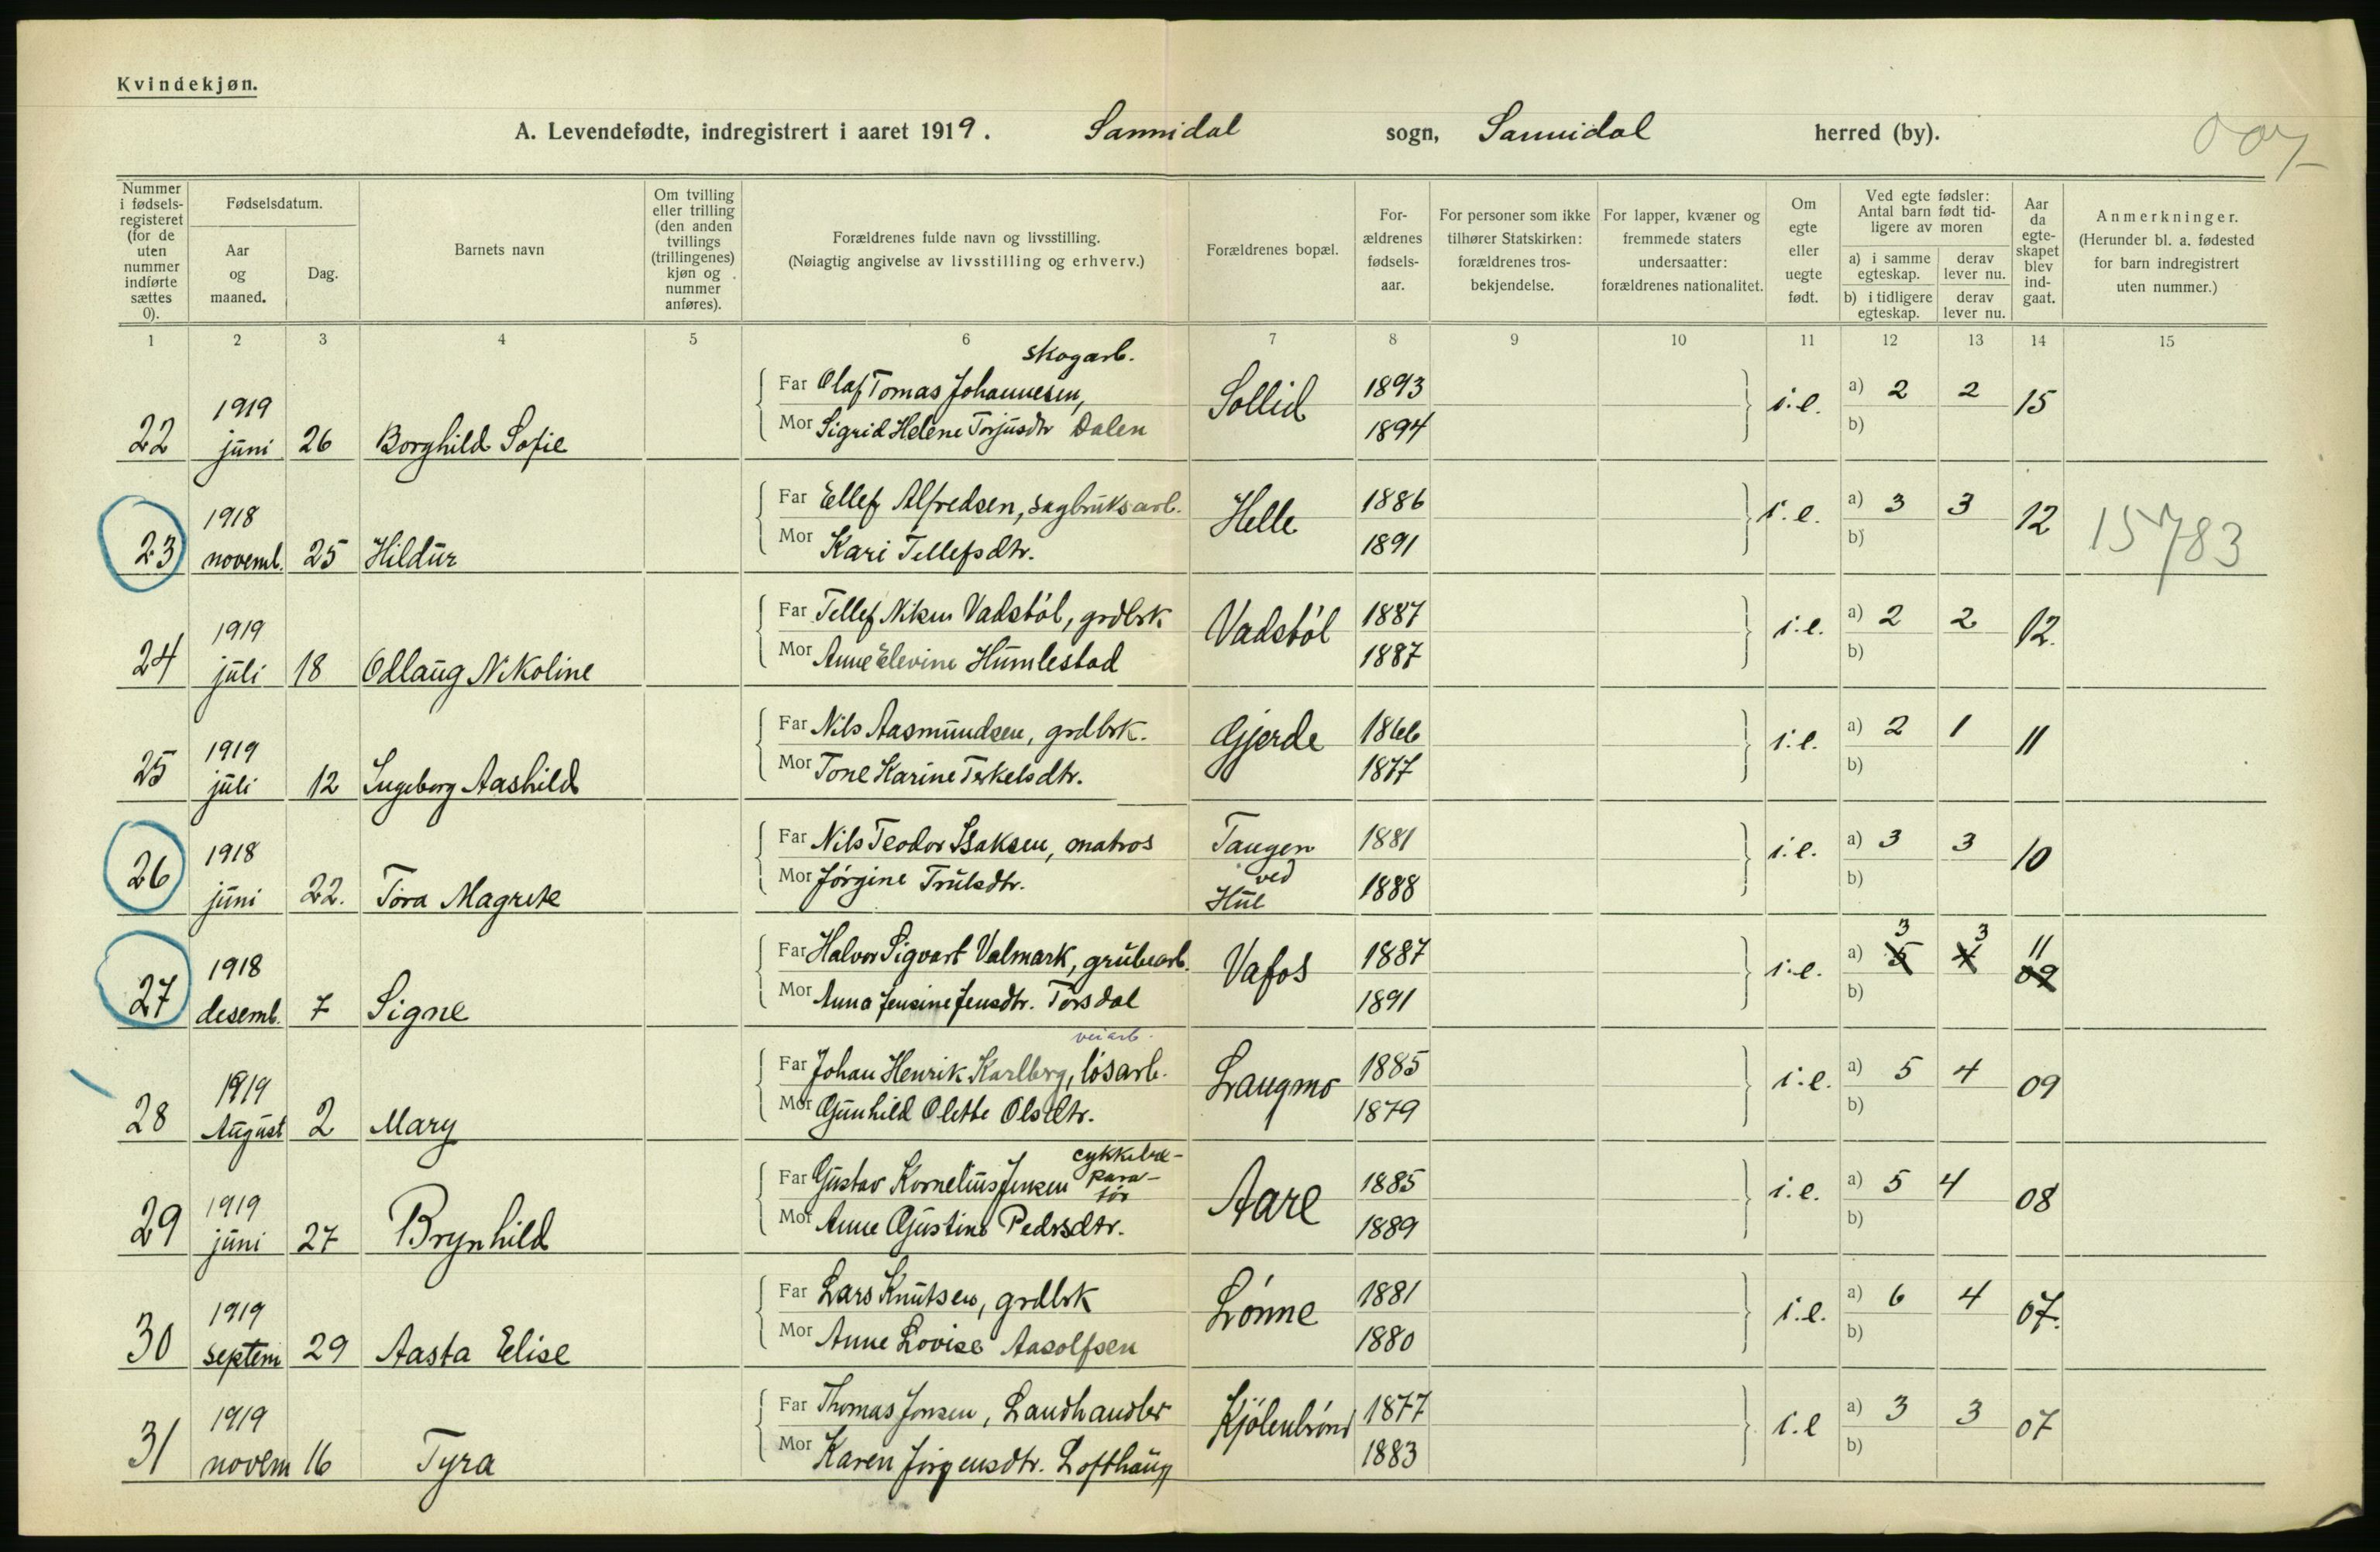 Kvindekjøn.
A. Levendefødte, indregistrert i aaret 1919. Sannidal sogn, Sannidal herred (by).
Nummer i fødsels-registeret (for de uten nummer indførte sættes 0).
Fødselsdatum.
Aar og maaned.
Dag.
Barnets navn
Om tvilling eller trilling (den anden tvillings (trillingenes) kjøn og nummer anføres).
Forældrenes fulde navn og livsstilling.
(Nøiagtig angivelse av livsstilling og erhverv.)
Forældrenes bopæl.
For-ældrenes fødsels-aar.
For personer som ikke tilhører Statskirken: forældrenes tros-bekjendelse.
For lapper, kvæner og fremmede staters undersaatter: forældrenes nationalitet.
Om egte eller uegte født.
Ved egte fødsler: Antal barn født tid-ligere av moren
a) i samme egteskap. derav lever nu.
b) i tidligere egteskap. derav lever nu.
Aar da egte-skapet blev ind-gaat.
Anmerkninger.
(Herunder bl. a. fødested for barn indregistrert uten nummer.)
1 2 3 4 5 6 7 8 9 10 11 12 13 14 15
skogarb.
1919 Far Olaf Tomas Johannesen, Sollid 1893 i.e. a) 2 2 15
22 juni 26 Borghild Sofie Mor Sigrid Helene Torjusdtr Dalen 1894 b)
1918 Far Ellef Alfredsen, sagbruksarb. Helle 1886 i.e. a) 3 3 12 15783
23 novemb. 25 Hildur Mor Kari Tellefsdtr. 1891 b)
1919 Far Tellef Nilsen Vadstöl, grdbrk. Vadstöl 1887 i.e. a) 2 2 12.
24 juli 18 Odlaug Nikoline Mor Anne Elevine Humlestad 1887 b)
1919 Far Nils Aasmundsen, grdbrk. Gjerde 1866 i.e. a) 2 1 11
25 juli 12 Ingeborg Aashild Mor Tone Karine Terkelsdtr. 1877 b)
1918 Far Nils Teodor Isaksen, matros Tangen ved Hul 1881 i.e. a) 3 3 10
26 juni 22. Tora Magrete Mor Jørgine Trulsdtr. 1888 b)
3 3 11
1918 Far Halvor Sigvart Valmark, grubearb. Vafos 1887 i.e. a) 5 4 09
27 desemb. 7 Signe Mor Anna Jensine Jensdtr. Torsdal 1891 b)
veiarb.
1919 Far Johan Henrik Karlberg, løsarb. Langmo 1885 i.e. a) 5 4 09
28 August 2 Mary Mor Gunhild Olette Olsdtr. 1879 b)
cykkelre-
para-
tör
1919 Far Gustav Kornelius Jensen Aare 1885 i.e. a) 5 4 08
29 juni 27 Brynhild Mor Anne Gustine Pedrsdtr. 1889 b)
1919 Far Lars Knutsen, grdbrk Lönne 1881 i.e. a) 6 4 07.
30 septem 29 Aasta Elise Mor Anne Lovise Aasolfsen 1880 b)
1919 Far Thomas Jonsen, Landhandler Kjölenbrönd 1877 i.e a) 3 3 07
31 novem 16 Tyra Mor Karen Jörgensdtr. Lofthaug 1883 b)